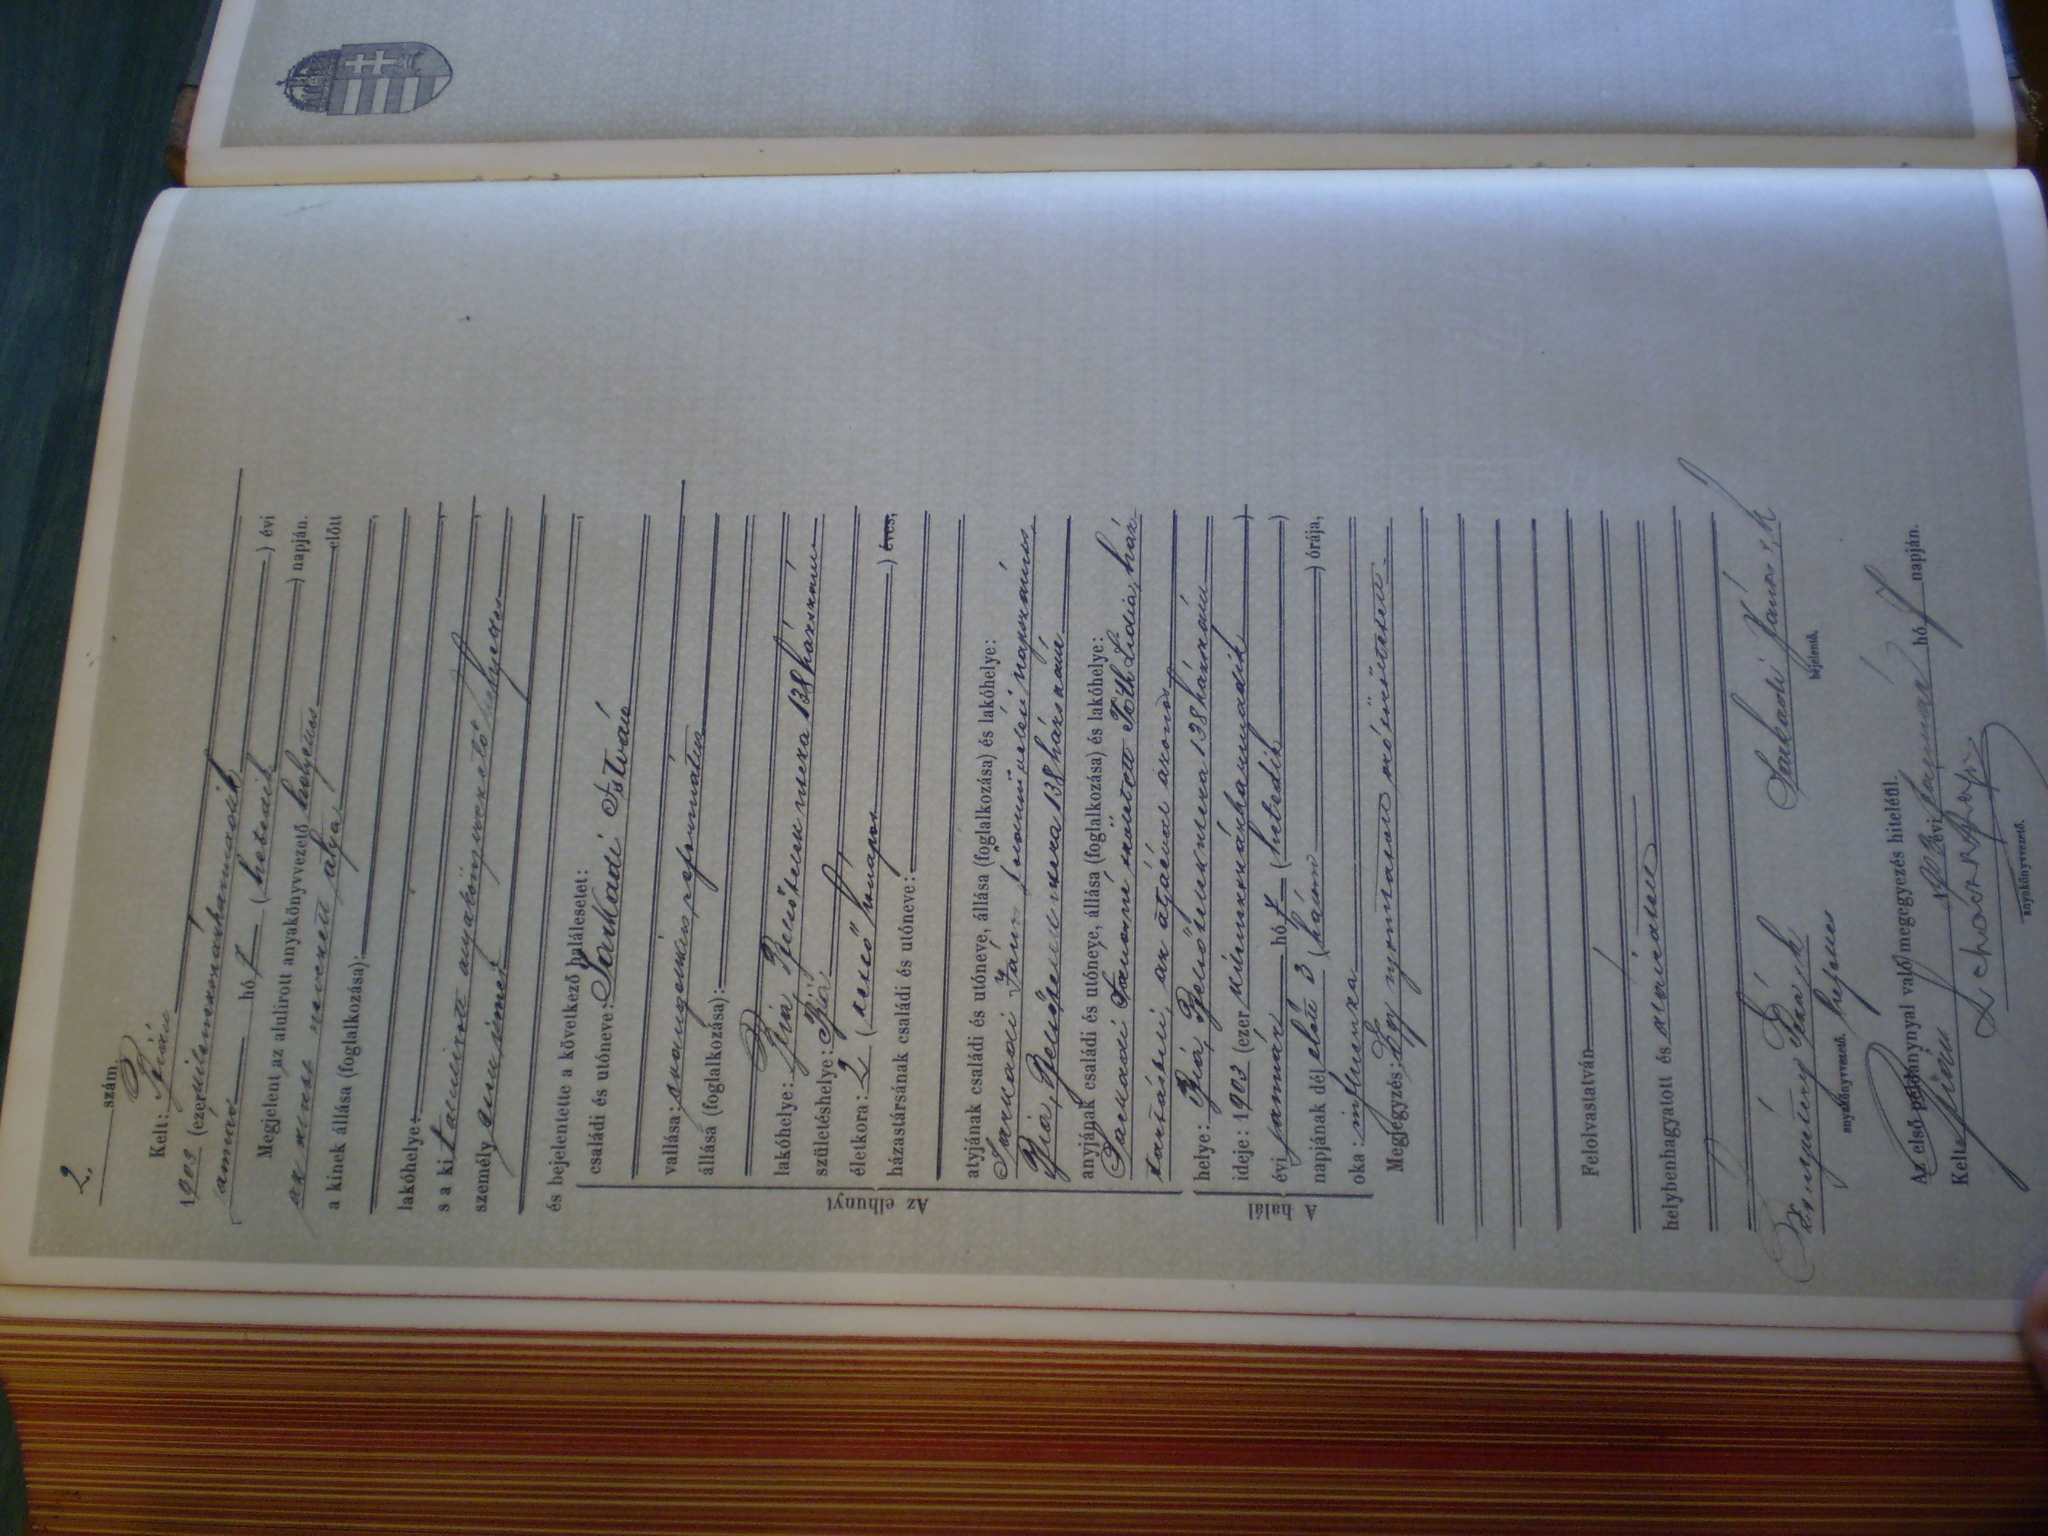 2. szám.
Kelt: Bián
1903 (ezerkilencszázharmadik) évi
január hó 7 (hetedik) napján.
Megjelent az alulirott anyakönyvvezető helyettes előtt
az alább nevezett atya
a kinek állása (foglalkozása):
lakóhelye:
s a kit alulirott anyakönyvvezető helyettes
személyesen ismer
és bejelentette a következő halálesetet:
Az elhunyt
családi és utóneve: Sarkadi István
vallása: evangelikus, reformatus
állása (foglalkozása):
lakóhelye: Bia, Belsőtelek utcza 138 házszám
születéshelye: Bia
életkora: 2 (kettő hónapos) éves,
házastársának családi és utóneve:
atyjának családi és utóneve, állása (foglalkozása) és lakóhelye:
Sarkadi János földmüvelési napszámos
Bia, Belsőtelek utcza 138 házszám
anyjának családi és utóneye, állása (foglalkozása) és lakóhelye:
Sarkadi Jánosné született Tóth Lidia, ház-
tartásbeli, az atyáéval azonos
A halál
helye: Bia, Belsőtelek utcza 138 házszám
ideje: 1903 (ezer kilenczszázharmadik)
évi január hó 7 (hetedik)
napjának dél előtt 3 (három) órája,
oka: influenza
Megjegyzés: Egy nyomtatott szó
Felolvastatván
helybenhagyatott és aláiratott
k
anyakönyvvezető helyettes
Sarkadi János s, k
bejelentő.
Az első példánynyal való megegyezés hiteléül.
Kelt Bián 1903 évi január hó 7 napján.
anyakönyvvezető.